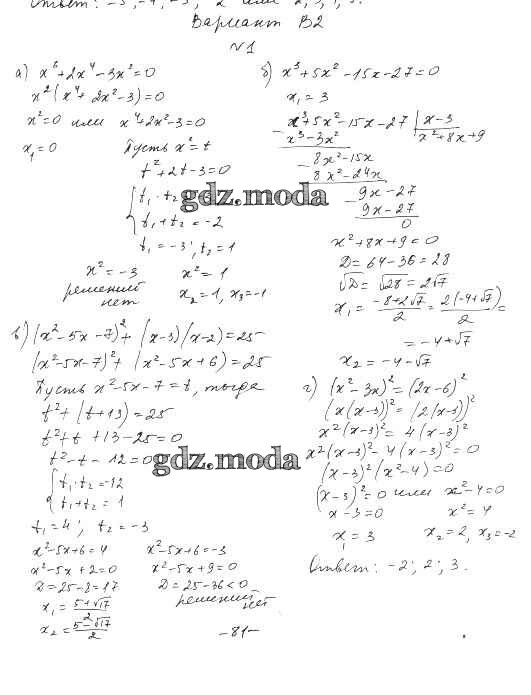 Ответ: -3, -1, -3, 2 или 2, 3, 1, 3.
Вариант В2
№1
а) x⁶+2x⁴-3x²=0
x²(x⁴+2x²-3)=0
x²=0 или x⁴+2x²-3=0
x₁=0 Пусть x²=t
t²+2t-3=0
t₁·t₂
gdz.moda
t₁+t₂=-2
t₁=-3; t₂=1
x²=-3 x²=1
решений
нет x₂=1, x₃=-1
б) x³+5x²-15x-27=0
x₁=3
x³+5x²-15x-27 | x-3
x³-3x² x²+8x+9
8x²-15x
8x²-24x
9x-27
9x-27
0
x²+8x+9=0
D=64-36=28
√D=√28=2√7
x₁=(-8+2√7)/2=2(-4+√7)/2=
=-4+√7
x₂=-4-√7
в) (x²-5x-7)²+(x-3)(x-2)=25
(x²-5x-7)²+(x²-5x+6)=25
Пусть x²-5x-7=t, тогда
t²+(t+13)=25
t²+t+13-25=0
t²-t-12=0
gdz.moda
t₁t₂=-12
t₁+t₂=1
t₁=4; t₂=-3
x²-5x+6=4 x²-5x+6=-3
x²-5x+2=0 x²-5x+9=0
D=25-8=17 D=25-36<0
x₁=(5+√17)/2 решений нет
x₂=(5-√17)/2
г) (x²-3x)²=(2x-6)²
(x(x-3))²=(2(x-3))²
x²(x-3)²=4(x-3)²
x²(x-3)²-4(x-3)²=0
(x-3)²(x²-4)=0
(x-3)²=0 или x²-4=0
x-3=0 x²=4
x₁=3 x₂=2, x₃=-2
Ответ: -2; 2; 3.
-81-